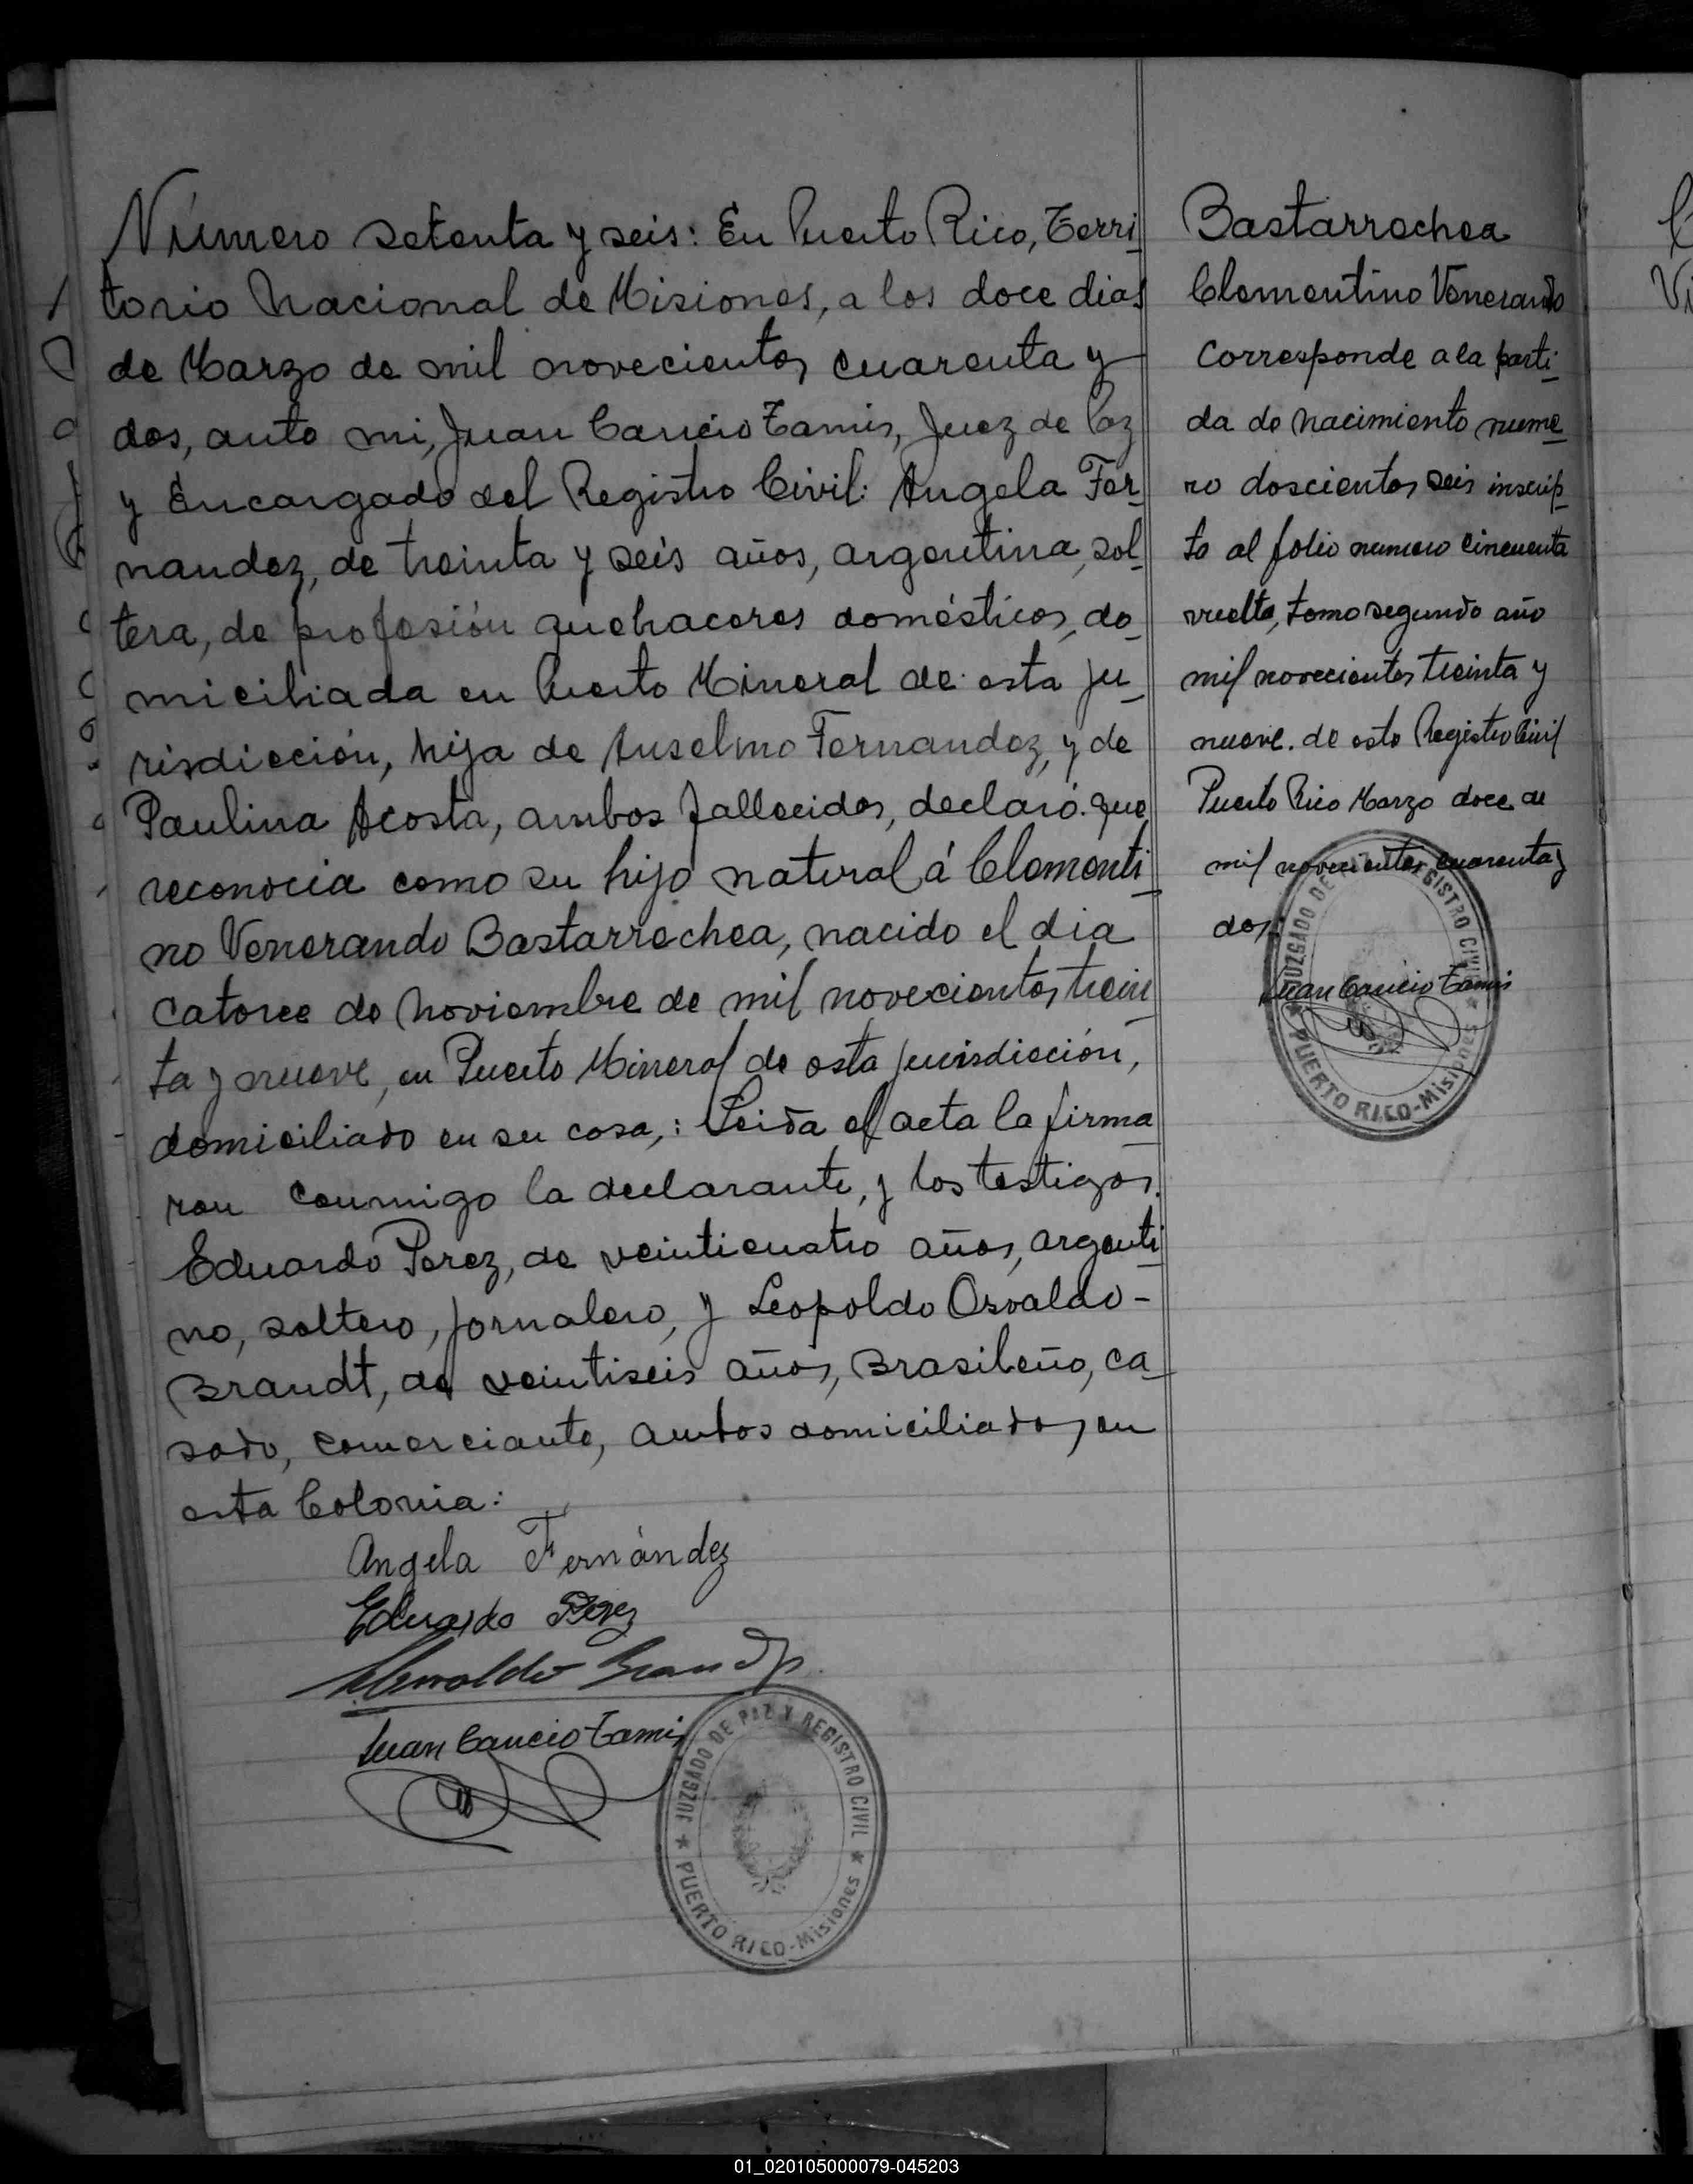 Número setenta y seis: En Puerto Rico, Terri-
torio Nacional de Misiones, a los doce dias
de Marzo de mil novecientos cuarenta y
dos, ante mi, Juan Cancio Tamis, Juez de Paz
y Encargado del Registro Civil: Angela Fer-
nandez, de treinta y seis años, argentina, sol-
tera, de profesión quehaceres domésticos, do-
miciliada en Puerto Mineral de esta ju-
risdicción, hija de Anselmo Fernandez, y de
Paulina Acosta, ambos fallecidos, declaró: que
reconocia como su hijo natural á Clementi-
no Venerando Bastarrechea, nacido el dia
catorce de Noviembre de mil novecientos trein-
ta y nueve, en Puerto Mineral de esta jurisdicción,
domiciliado en su casa,: Leida el acta la firma
ron conmigo la declarante, y los testigos.
Eduardo Perez, de veinticuatro años, argenti-
no, soltero, jornalero, y Leopoldo Osvaldo -
Brandt, de veintiseis años, Brasileño, ca-
sado, comerciante, ambos domiciliados en
esta Colonia:
Angela Fernández
Eduardo Perez
Osvaldo Brandt
Juan Cancio Tamis
JUZGADO DE PAZ Y REGISTRO CIVIL
★ PUERTO RICO-Misiones ★
Bastarrechea
Clementino Venerando
Corresponde a la parti-
da de nacimiento nume-
ro doscientos seis inscrip-
to al folio numero cincuenta
vuelto, tomo segundo año
mil novecientos treinta y
nueve. de este Registro Civil
Puerto Rico Marzo doce de
mil novecientos cuarenta y
dos:
Juan Cancio Tamis
JUZGADO DE REGISTRO CIVIL
★ PUERTO RICO-Misiones ★
01_020105000079-045203